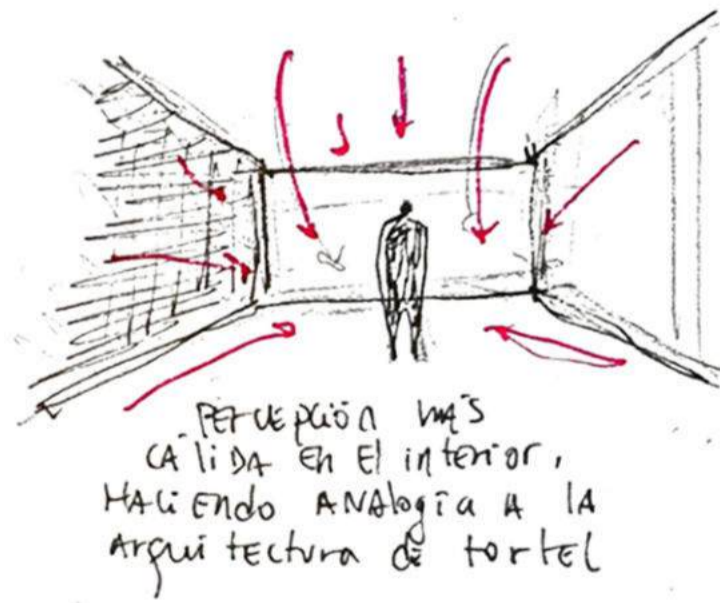 PERCEPCIÓN MÁS
CÁLIDA EN El interior,
HACIENDO ANAlogía A lA
Arqui tectura de tortel